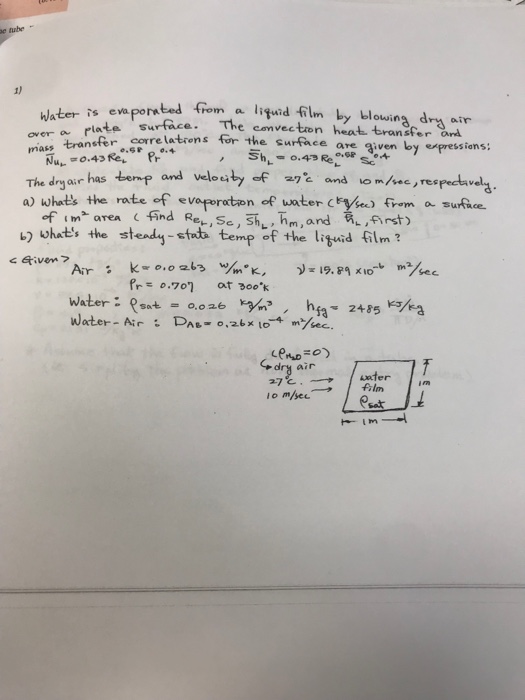 tube
1)
Water is evaporated from a liquid film by blowing dry air
over a plate surface. The convection heat transfer and
mass transfer correlations for the surface are given by expressions:
Nu_L = 0.43 Re_L^0.58 Pr^0.4 , Sh_L = 0.43 Re_L^0.58 Sc^0.4
The dry air has temp and velocity of 27°C and 10 m/sec, respectively.
a) What's the rate of evaporation of water (kg/sec) from a surface
of 1m² area ( find Re_L, Sc, S̅h̅_L, h̅_m, and h̅_L, first)
b) What's the steady-state temp of the liquid film?
< Given >
Air : K = 0.0263 W/m°K, ν = 15.89 x10^-6 m²/sec
Pr = 0.707 at 300°K
Water : ρsat = 0.026 kg/m³, hfg = 2485 KJ/kg
Water-Air : D_AB = 0.26 x 10^-4 m²/sec.
(ρ_H2O = 0)
dry air
27°C.
10 m/sec
water
film
ρsat
1m
1m